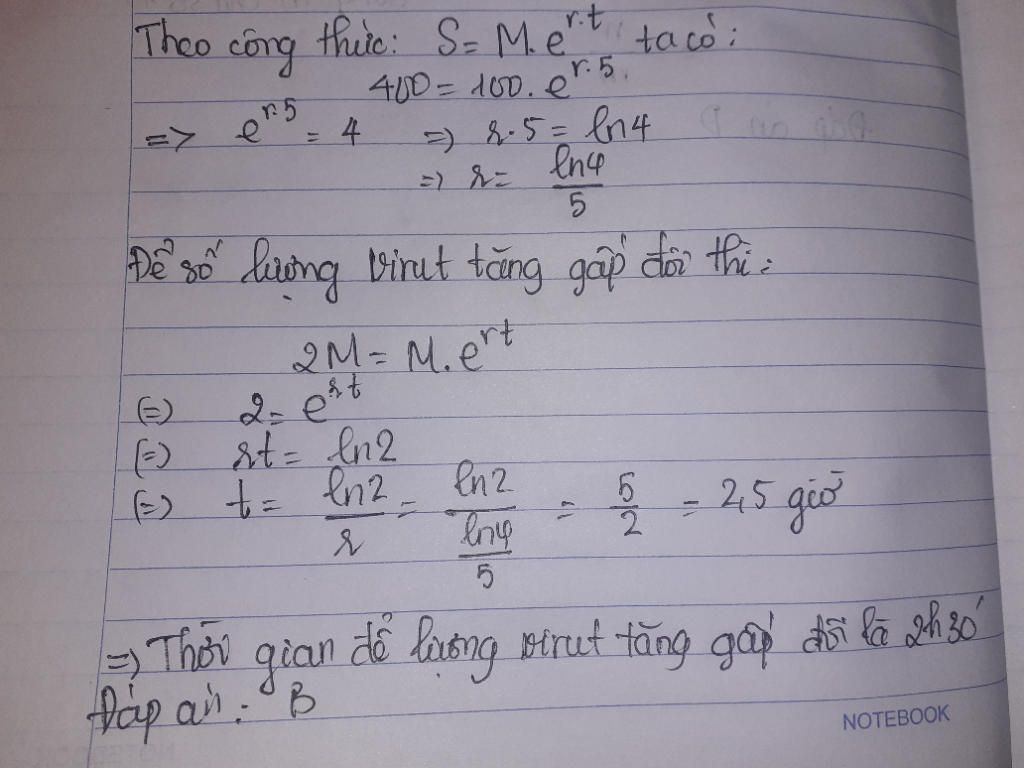 Theo công thức: S = M.e^{r.t} ta có:
400 = 100.e^{r.5}.
=> e^{r.5} = 4 => r.5 = ln4
=> r = \frac{ln4}{5}
Để số lượng virut tăng gấp đôi thì:
2M = M.e^{rt}
(=) 2 = e^{rt}
(=) rt = ln2
(=) t = \frac{ln2}{r} = \frac{ln2}{\frac{ln4}{5}} = \frac{5}{2} = 2,5 giờ
=> Thời gian để lượng virut tăng gấp đôi là 2h30'
Đáp án: B
NOTEBOOK